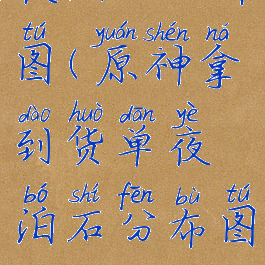 tú yuán shén ná
图(原神拿
dào huò dān yè
到货单夜
bó shí fēn bù tú
泊石分布图